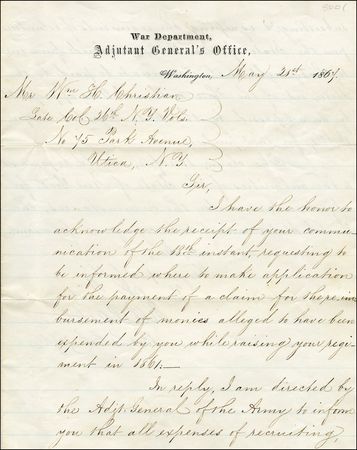 War Department,
Adjutant General's Office,
Washington, May 21st 1867.
Mr Wm H. Christian
Late Col 26th N.Y. Vols.
No 75 Park Avenue,
Utica, N.Y.
Sir,
I have the honor to
acknowledge the receipt of your commu-
nication of the 18th instant, requesting to
be informed where to make application
for the payment of a claim for the reim
bursement of monies alleged to have been
expended by you while raising your regi-
ment in 1861.—
In reply, I am directed by
the Adjt. General of the Army to inform
you that all expenses of recruiting,